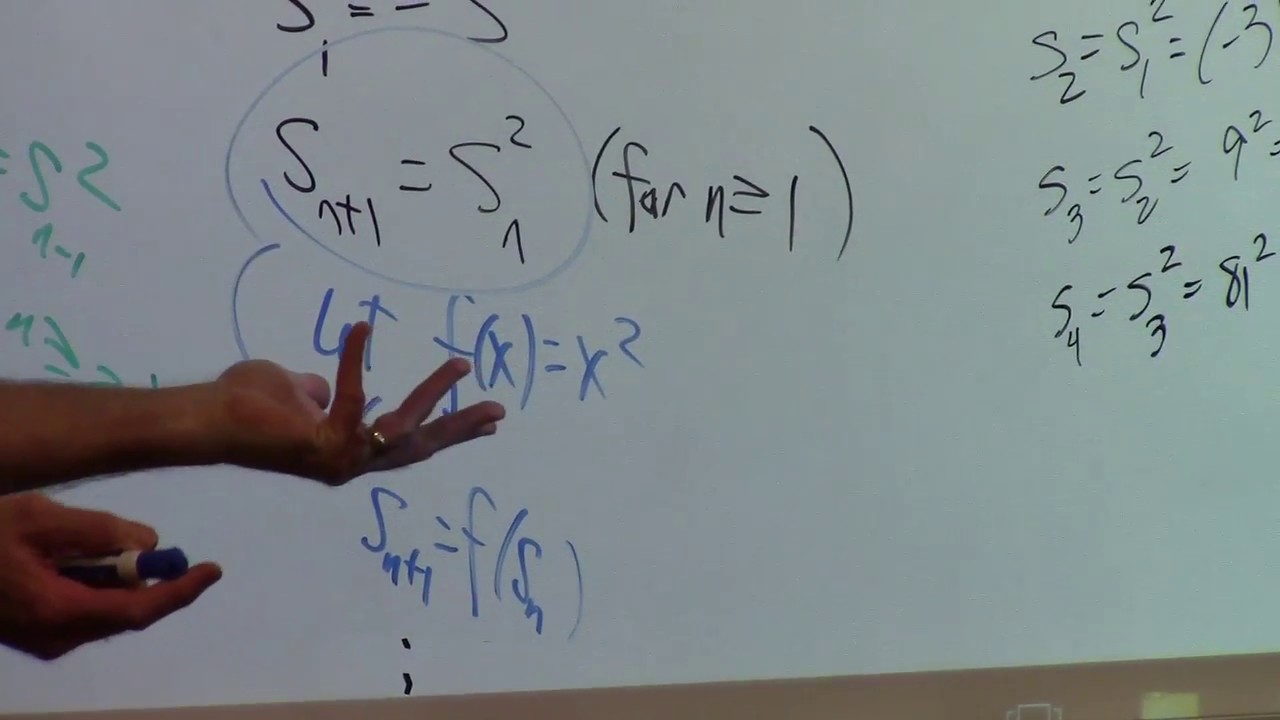 S₁ = -3
Sₙ₊₁ = Sₙ² (for n ≥ 1)
Let f(x) = x²
Sₙ₊₁ = f(Sₙ)
S₂ = S₁² = (-3)
S₃ = S₂² = 9² =
S₄ = S₃² = 81²